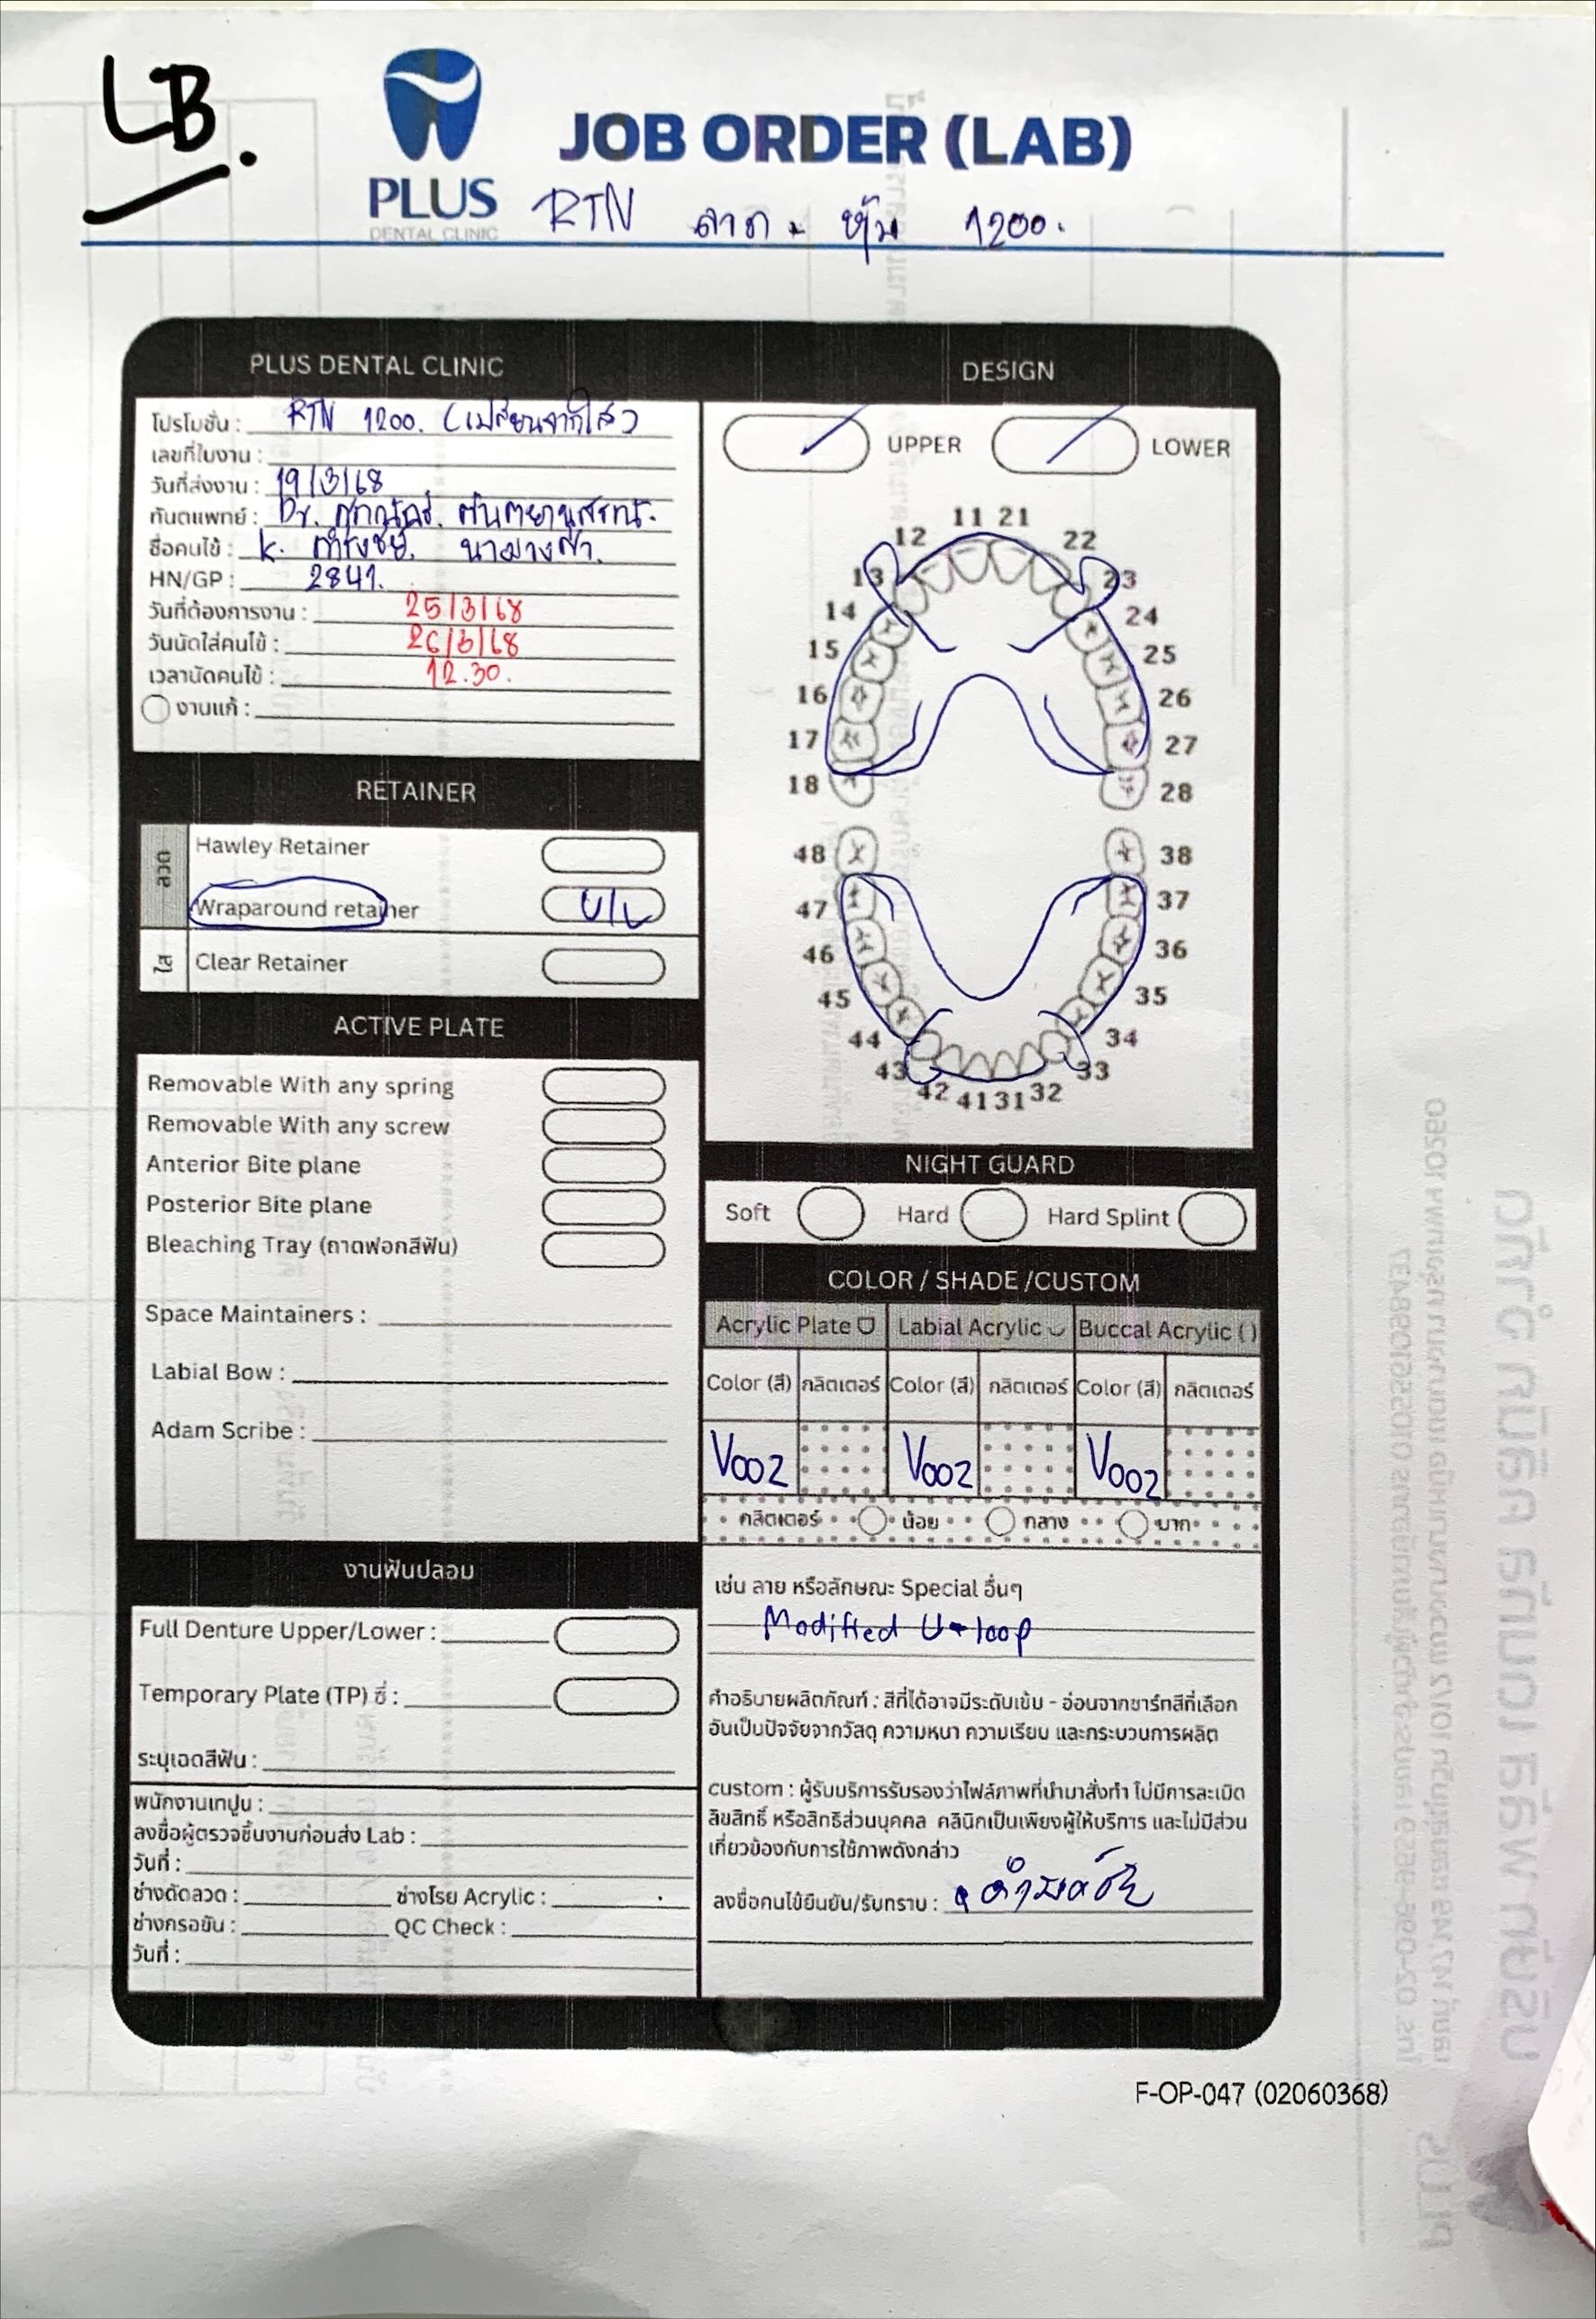 LB.
PLUS
DENTAL CLINIC
JOB ORDER (LAB)
RTN ลวด - หุ้ม 1200.
PLUS DENTAL CLINIC
โปรโมชั่น : RTN 1200. (เปลี่ยนจากใส)
เลขที่ใบงาน :
วันที่ส่งงาน : 19/3/68
ทันตแพทย์ : Dr.
ชื่อคนไข้ : K.
HN/GP : 2841.
วันที่ต้องการงาน : 25/3/68
วันนัดใส่คนไข้ : 26/3/68
เวลานัดคนไข้ : 12.30.
งานแก้ :
RETAINER
ลวด
Hawley Retainer
Wraparound retainer U/L
ใส
Clear Retainer
ACTIVE PLATE
Removable With any spring
Removable With any screw
Anterior Bite plane
Posterior Bite plane
Bleaching Tray (ถาดฟอกสีฟัน)
Space Maintainers :
Labial Bow :
Adam Scribe :
งานฟันปลอม
Full Denture Upper/Lower :
Temporary Plate (TP) ซี่ :
ระบุเฉดสีฟัน :
พนักงานเทปูน :
ลงชื่อผู้ตรวจชิ้นงานก่อนส่ง Lab :
วันที่ :
ช่างดัดลวด : ช่างโรย Acrylic :
ช่างกรอขัน : QC Check :
วันที่ :
DESIGN
UPPER LOWER
11 21
12 22
13 23
14 24
15 25
16 26
17 27
18 28
48 38
47 37
46 36
45 35
44 34
43 33
42 41 31 32
NIGHT GUARD
Soft Hard Hard Splint
COLOR / SHADE /CUSTOM
Acrylic Plate Labial Acrylic Buccal Acrylic ()
Color (สี) กลิตเตอร์ Color (สี) กลิตเตอร์ Color (สี) กลิตเตอร์
V002 V002 V002
กลิตเตอร์ น้อย กลาง มาก
เช่น ลาย หรือลักษณะ Special อื่นๆ
Modified U-loop
คำอธิบายผลิตภัณฑ์ : สีที่ได้อาจมีระดับเข้ม - อ่อนจากชาร์ทสีที่เลือก
อันเป็นปัจจัยจากวัสดุ ความหนา ความเรียบ และกระบวนการผลิต
custom : ผู้รับบริการรับรองว่าไฟล์ภาพที่นำมาสั่งทำ ไม่มีการละเมิด
ลิขสิทธิ์ หรือสิทธิส่วนบุคคล คลินิกเป็นเพียงผู้ให้บริการ และไม่มีส่วน
เกี่ยวข้องกับการใช้ภาพดังกล่าว
ลงชื่อคนไข้ยืนยัน/รับทราบ :
F-OP-047 (02060368)